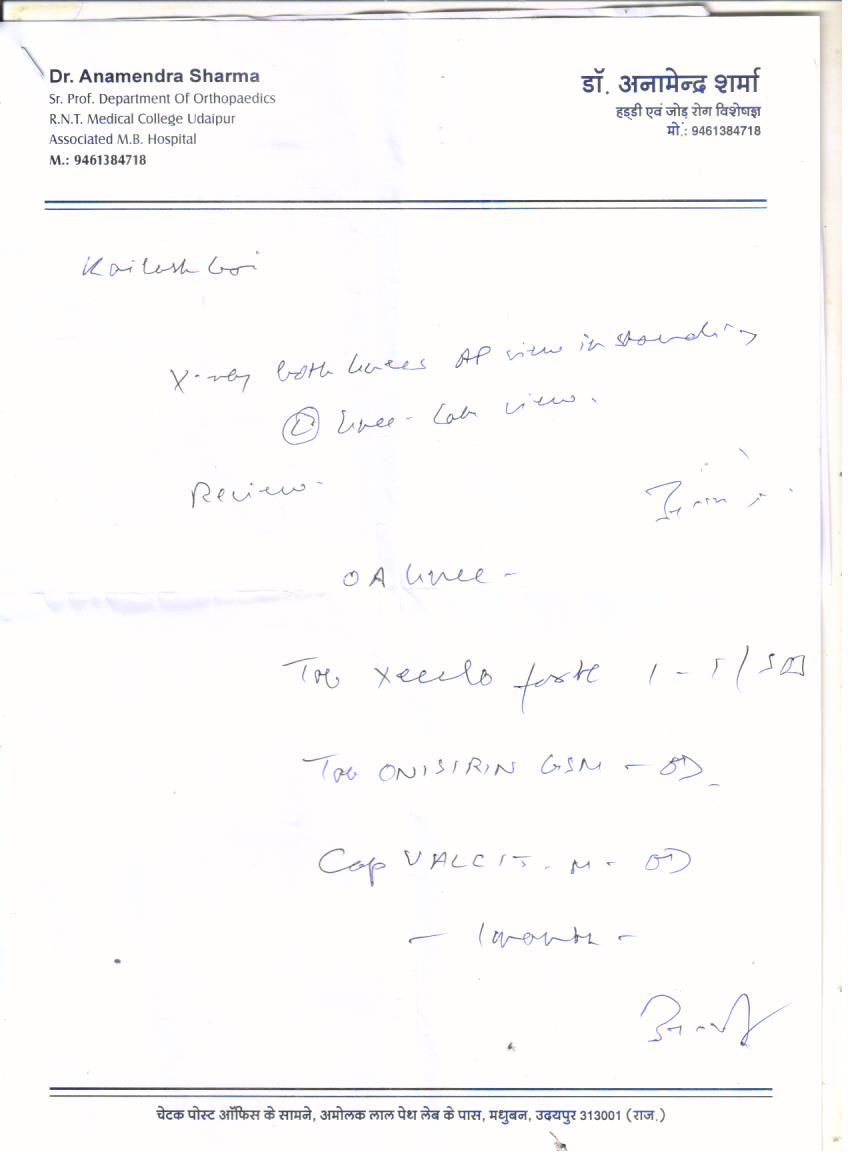 Dr. Anamendra Sharma
Sr. Prof. Department Of Orthopaedics
R.N.T. Medical College Udaipur
Associated M.B. Hospital
M.: 9461384718
डॉ. अनामेन्द्र शर्मा
हड्डी एवं जोड़ रोग विशेषज्ञ
मो.: 9461384718
Kailash
X-ray both knees AP view in standing
knee - Lat view.
Review
OA knee -
Tab forte 1 - 1 /
Tab ONISIRIN GSM - OD
Cap VALCIT - M - OD
- 1 month -
चेटक पोस्ट ऑफिस के सामने, अमोलक लाल पेथ लेब के पास, मधुबन, उदयपुर 313001 (राज.)